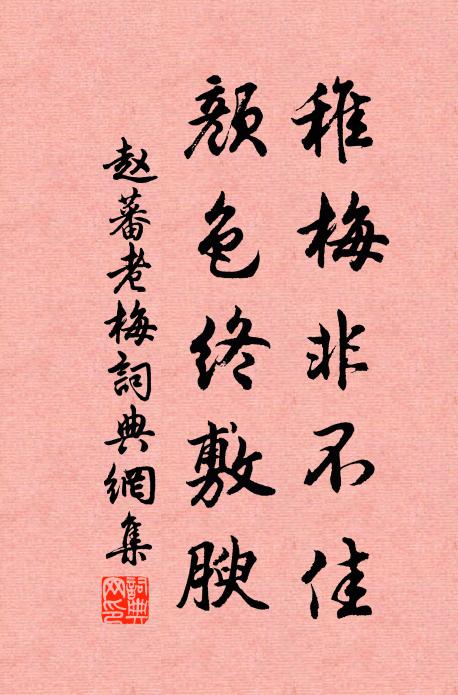 稚梅非不佳
颜色终敷腴
赵蕃老梅詞典網集
詞典网印